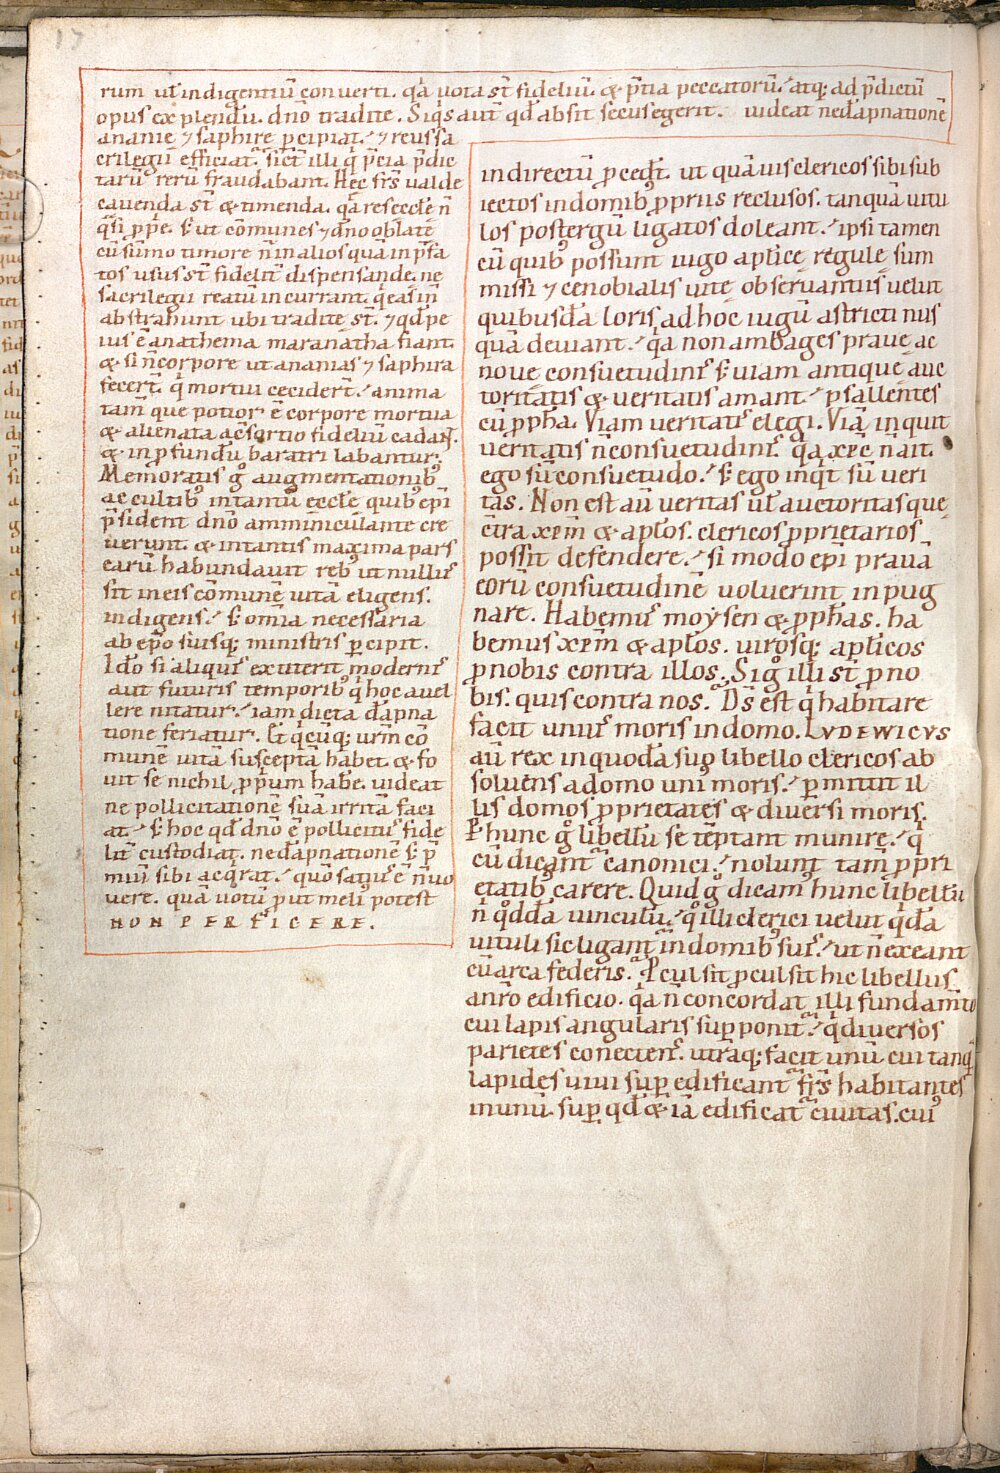 17
rum ut̄ indigentiū converti. qa uota st̄ fideliū. & p̄tia peccatorū. atq; ad p̄dictū
opus explendū. dn̄o tradite. Siqs aut̄ qd̄ absit secus egerit. uideat ne dāpnationē
ananie ⁊ saphire pcipiat. ⁊ reus sa
crilegii efficiat. sicut illi q̄ p̄cia p̄dic
tarū rerū fraudabant. Hec frs̄ ualde
cauenda st̄ & timenda. qa res eccłe n̄
qsi pp̄e. s; ut cōmunes ⁊ dn̄o oblate
cū sūmo timore n̄ in alios quā in p̄fa
tos usus st̄ fidelit̄ dispensande. ne
sacrilegii reatū incurrant. q̄ eas in̄
abstrahunt ubi tradite st̄. ⁊ qd̄ pe
ius ē anathema maranatha fiant.
& si n̄ corpore ut ananias ⁊ saphira
fecert̄. q̄ mortui cecidert̄. anima
tam̄ que potior ē corpore mortua
& alienata a cōsortio fideliū cadant.
& in pfundū baratri labantur.
Memoratis g̊ augmentationib;
ac cultib; in tantū eccłe quib; ep̄i
p̄sident dn̄o amminiculante cre
uerunt. & in tantis maxima pars
earū habundauit reb; ut nullus
sit in eis cōmunē uitā eligens.
indigens. s; om̄ia necessaria
ab ep̄o suisq; ministris pcipit.
Ido si aliquis extiterit modernis
aut futuris temporib; q̄ hoc auel
lere nitatur. iam dicta dāpna
tione feriatur. Et qcūq; urm̄ cō
munē uitā susceptā habet. & fo
uit se nichil pp̄um habē. uideat
ne pollicitationē suā irritā faci
at. s; hoc qd̄ dn̄o ē pollicitus fide
lit̄ custodiat. ne dāpnationē s; p̄
miū sibi acqrat. quō satius ē n̄ uo
uere. quā uotū put meli; potest
NON PERFICERE.
indirectū pcedt̄. ut quāuis clericos sibi sub
iectos in domib; ppriis reclusos. tanquā uitu
los postergū ligatos doleant. ipsi tamen
cū quib; possunt iugo apłice regule sum
missi ⁊ cenobialis uite obseruantiis uelut
quibusdā loris ad hoc iugū astricti nus
quā deuiant. qa non ambages praue ac
noue consuetudinis s; uiam antique auc
toritatis & ueritatis amant. psallentes
cū ppha. Viam ueritatis elegi. Viā inquit
ueritatis n̄ consuetudinis. qa xpc n̄ ait.
ego sū consuetudo. s; ego inqt sū ueri
tas. Non est aū ueritas uł auctoritas que
c̄tra xpm̄ & apłos. clericos pprietarios
possit defendere. si modo ep̄i prauā
eorū consuetudinē uoluerint inpug
nare. Habemus moysen & pphas. ha
bemus xpm̄ & apłos. uirosq; apłicos
pnobis contra illos. Si g̊ illi st̄ pno
bis. quis contra nos. Ds̄ est q̄ habitare
facit unius moris in domo. LVDEWICVS
aū rex in quodā suo libello clericos ab
soluens a domo uni; moris. pmittit il
lis domos pprietates & diuersi moris.
P hunc g̊ libellū se tēptant munire. q̄
cū dicant̄ canonici. nolunt tam̄ ppri
etatib; carere. Quid g̊ dicam̄ hunc libellū
n̄ qddā uinculū. q̊ illi clerici uelut qdā
uituli sic ligant̄ in domib; suis. ut n̄ exeant
cū arca federis. Pcul sit pcul sit hic libellus
a nr̄o edificio. qa n̄ concordat illi fundam̄to
cui lapis angularis supponit̄. q̄ diuersos
parietes conectens. utraq; facit unū cui tanq̄
lapides uiui supedificant̄ frs̄ habitantes
in unū. sup qd̄ & iā edificat̄ ciuitas. cui;